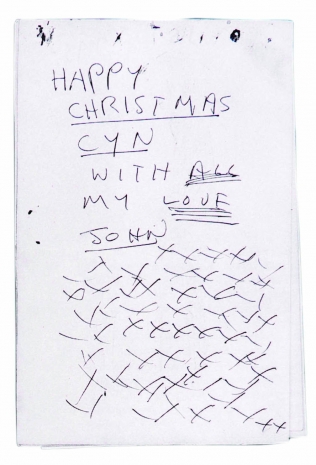 HAPPY
CHRISTMAS
CYN
WITH ALL
MY LOVE
JOHN